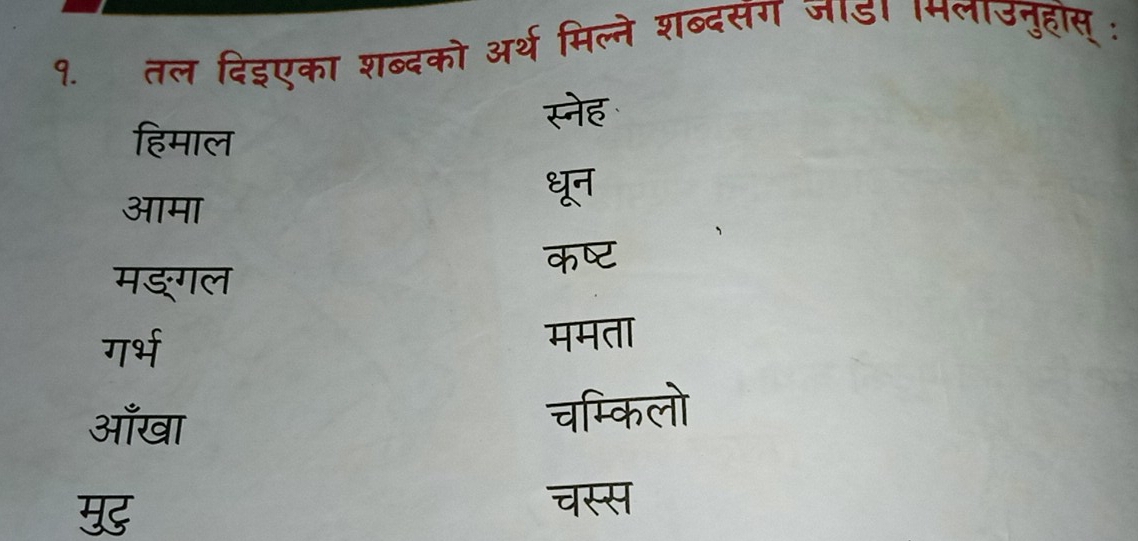 १. तल दिइएका शब्दको अर्थ मिल्ने शब्दसँग जोडा मिलाउनुहोस् :
हिमाल स्नेह
आमा धून
मङ्गल कष्ट
गर्भ ममता
आँखा चम्किलो
मुटु चस्स